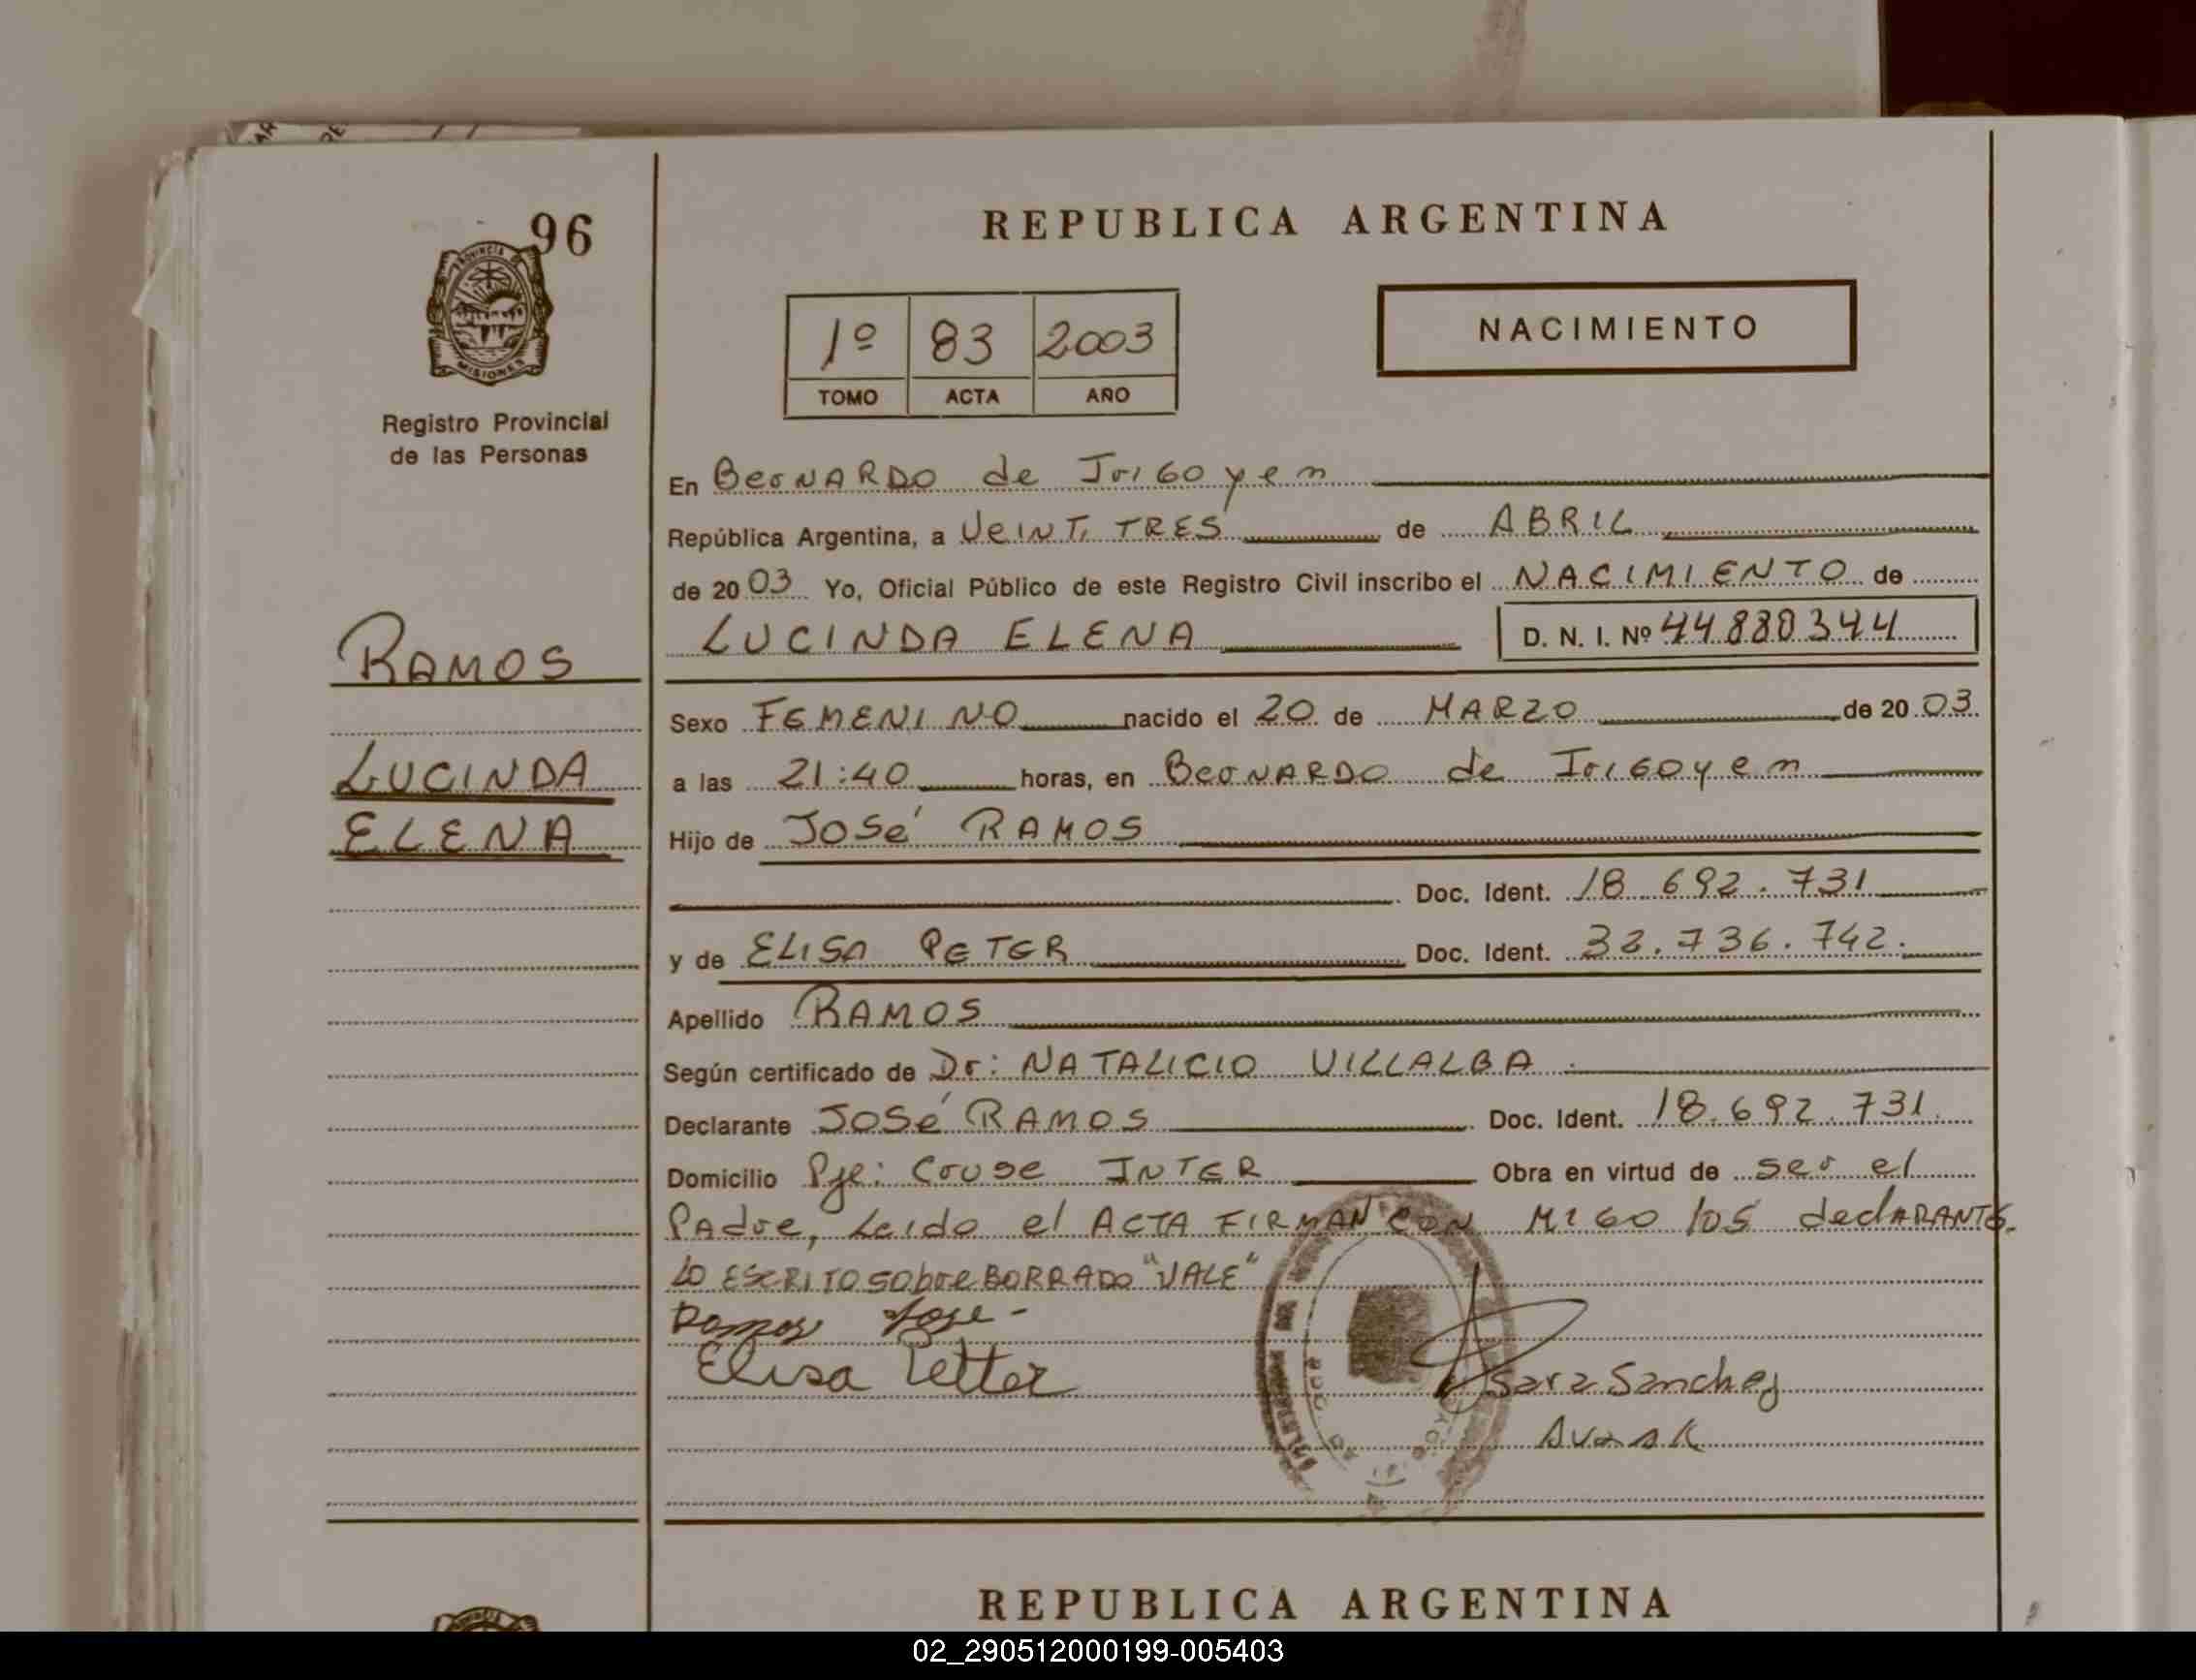 96
PROVINCIA DE
MISIONES
Registro Provincial
de las Personas
REPUBLICA ARGENTINA
1º 83 2003
TOMO ACTA AÑO
NACIMIENTO
En BerNARDO de IriGoyen
República Argentina, a VeINTI TRES de ABRIL
de 2003 Yo, Oficial Público de este Registro Civil inscribo el NACIMIENTO de
LUCINDA ELENA D. N. I. Nº 44880344
RAMOS
Sexo FEMENINO nacido el 20 de MARZO de 2003
LUCINDA
a las 21:40 horas, en BerNARDO de IriGoyen
ELENA
Hijo de José RAMOS
Doc. Ident. 18.692.731
y de ELISA PETER Doc. Ident. 32.736.742.
Apellido RAMOS
Según certificado de Dr: NATALICIO VILLALBA.
Declarante José RAMOS Doc. Ident. 18.692.731.
Domicilio Pje: Cruse INTER Obra en virtud de ser el
Padre, Leido el ACTA FIRMAN CON MIGO los declARANTES.
LO ESCRITO sobre BORRADO "VALE"
Ramos Jose -
Elisa Petter
Sara Sanchez
REPUBLICA ARGENTINA
02_290512000199-005403